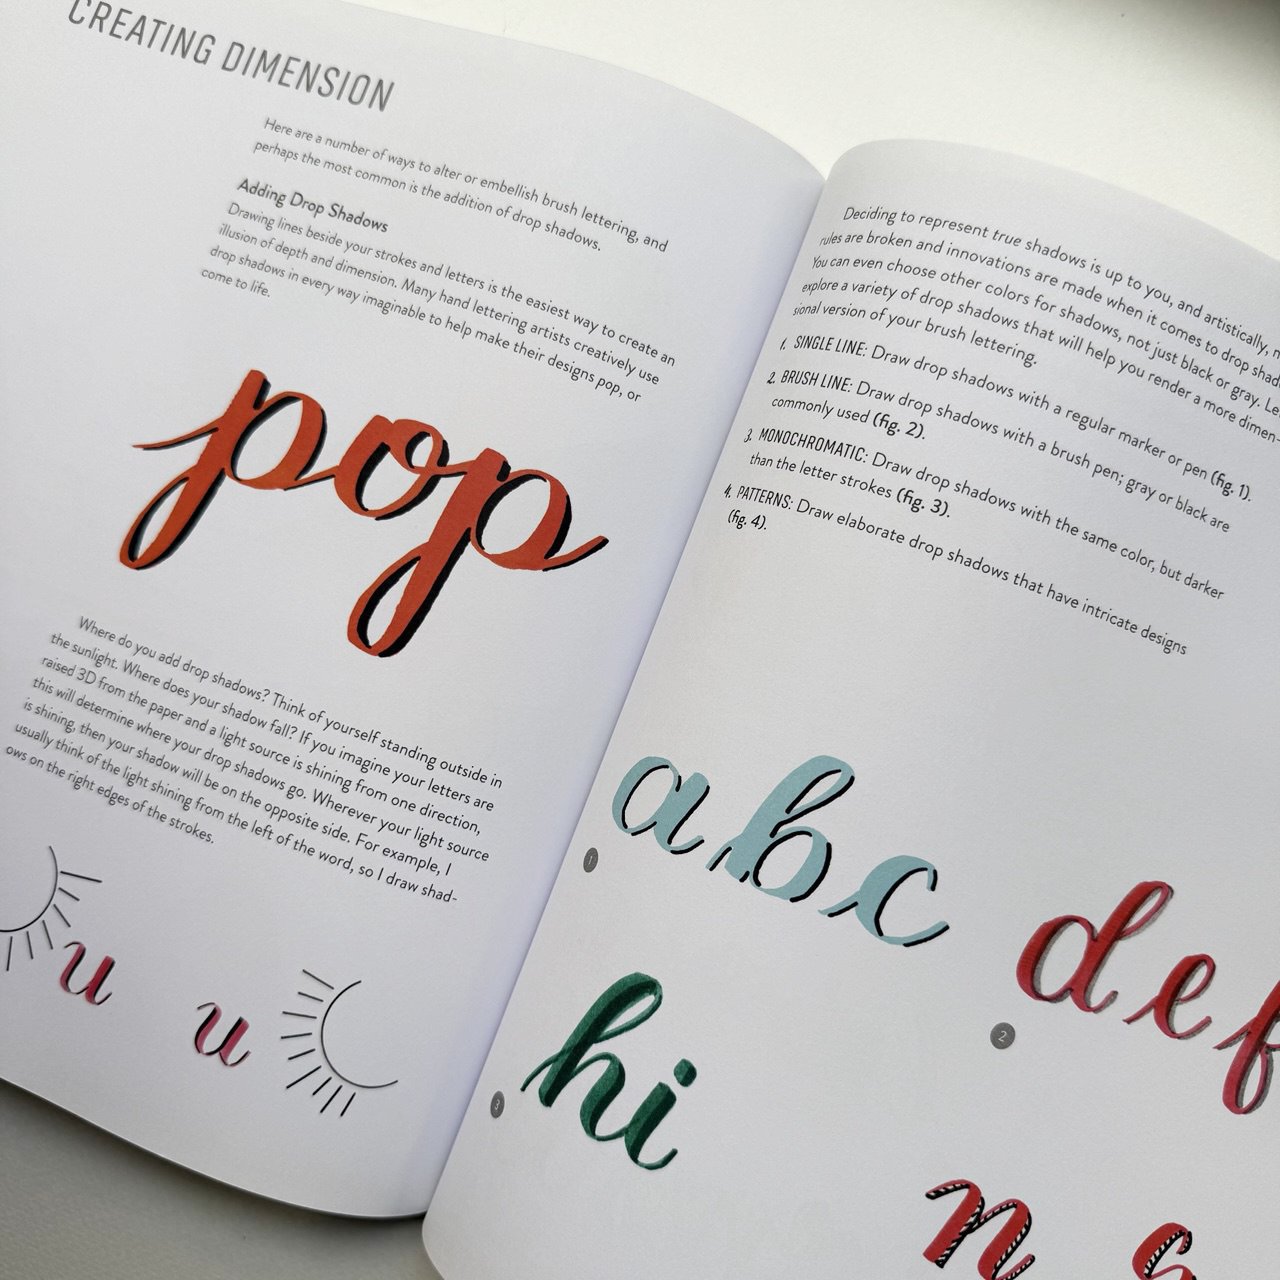 CREATING DIMENSION
Here are a number of ways to alter or embellish brush lettering, and
perhaps the most common is the addition of drop shadows.
Adding Drop Shadows
Drawing lines beside your strokes and letters is the easiest way to create an
illusion of depth and dimension. Many hand lettering artists creatively use
drop shadows in every way imaginable to help make their designs pop, or
come to life.
pop
Where do you add drop shadows? Think of yourself standing outside in
the sunlight. Where does your shadow fall? If you imagine your letters are
raised 3D from the paper and a light source is shining from one direction,
this will determine where your drop shadows go. Wherever your light source
is shining, then your shadow will be on the opposite side. For example, I
usually think of the light shining from the left of the word, so I draw shad-
ows on the right edges of the strokes.
u
u
Deciding to represent true shadows is up to you, and artistically,
rules are broken and innovations are made when it comes to drop
You can even choose other colors for shadows, not just black or gray.
explore a variety of drop shadows that will help you render a more dimen-
sional version of your brush lettering.
1. SINGLE LINE: Draw drop shadows with a regular marker or pen (fig. 1).
2. BRUSH LINE: Draw drop shadows with a brush pen; gray or black are
commonly used (fig. 2).
3. MONOCHROMATIC: Draw drop shadows with the same color, but darker
than the letter strokes (fig. 3).
4. PATTERNS: Draw elaborate drop shadows that have intricate designs
(fig. 4).
abc
1
def
2
hi
3
n